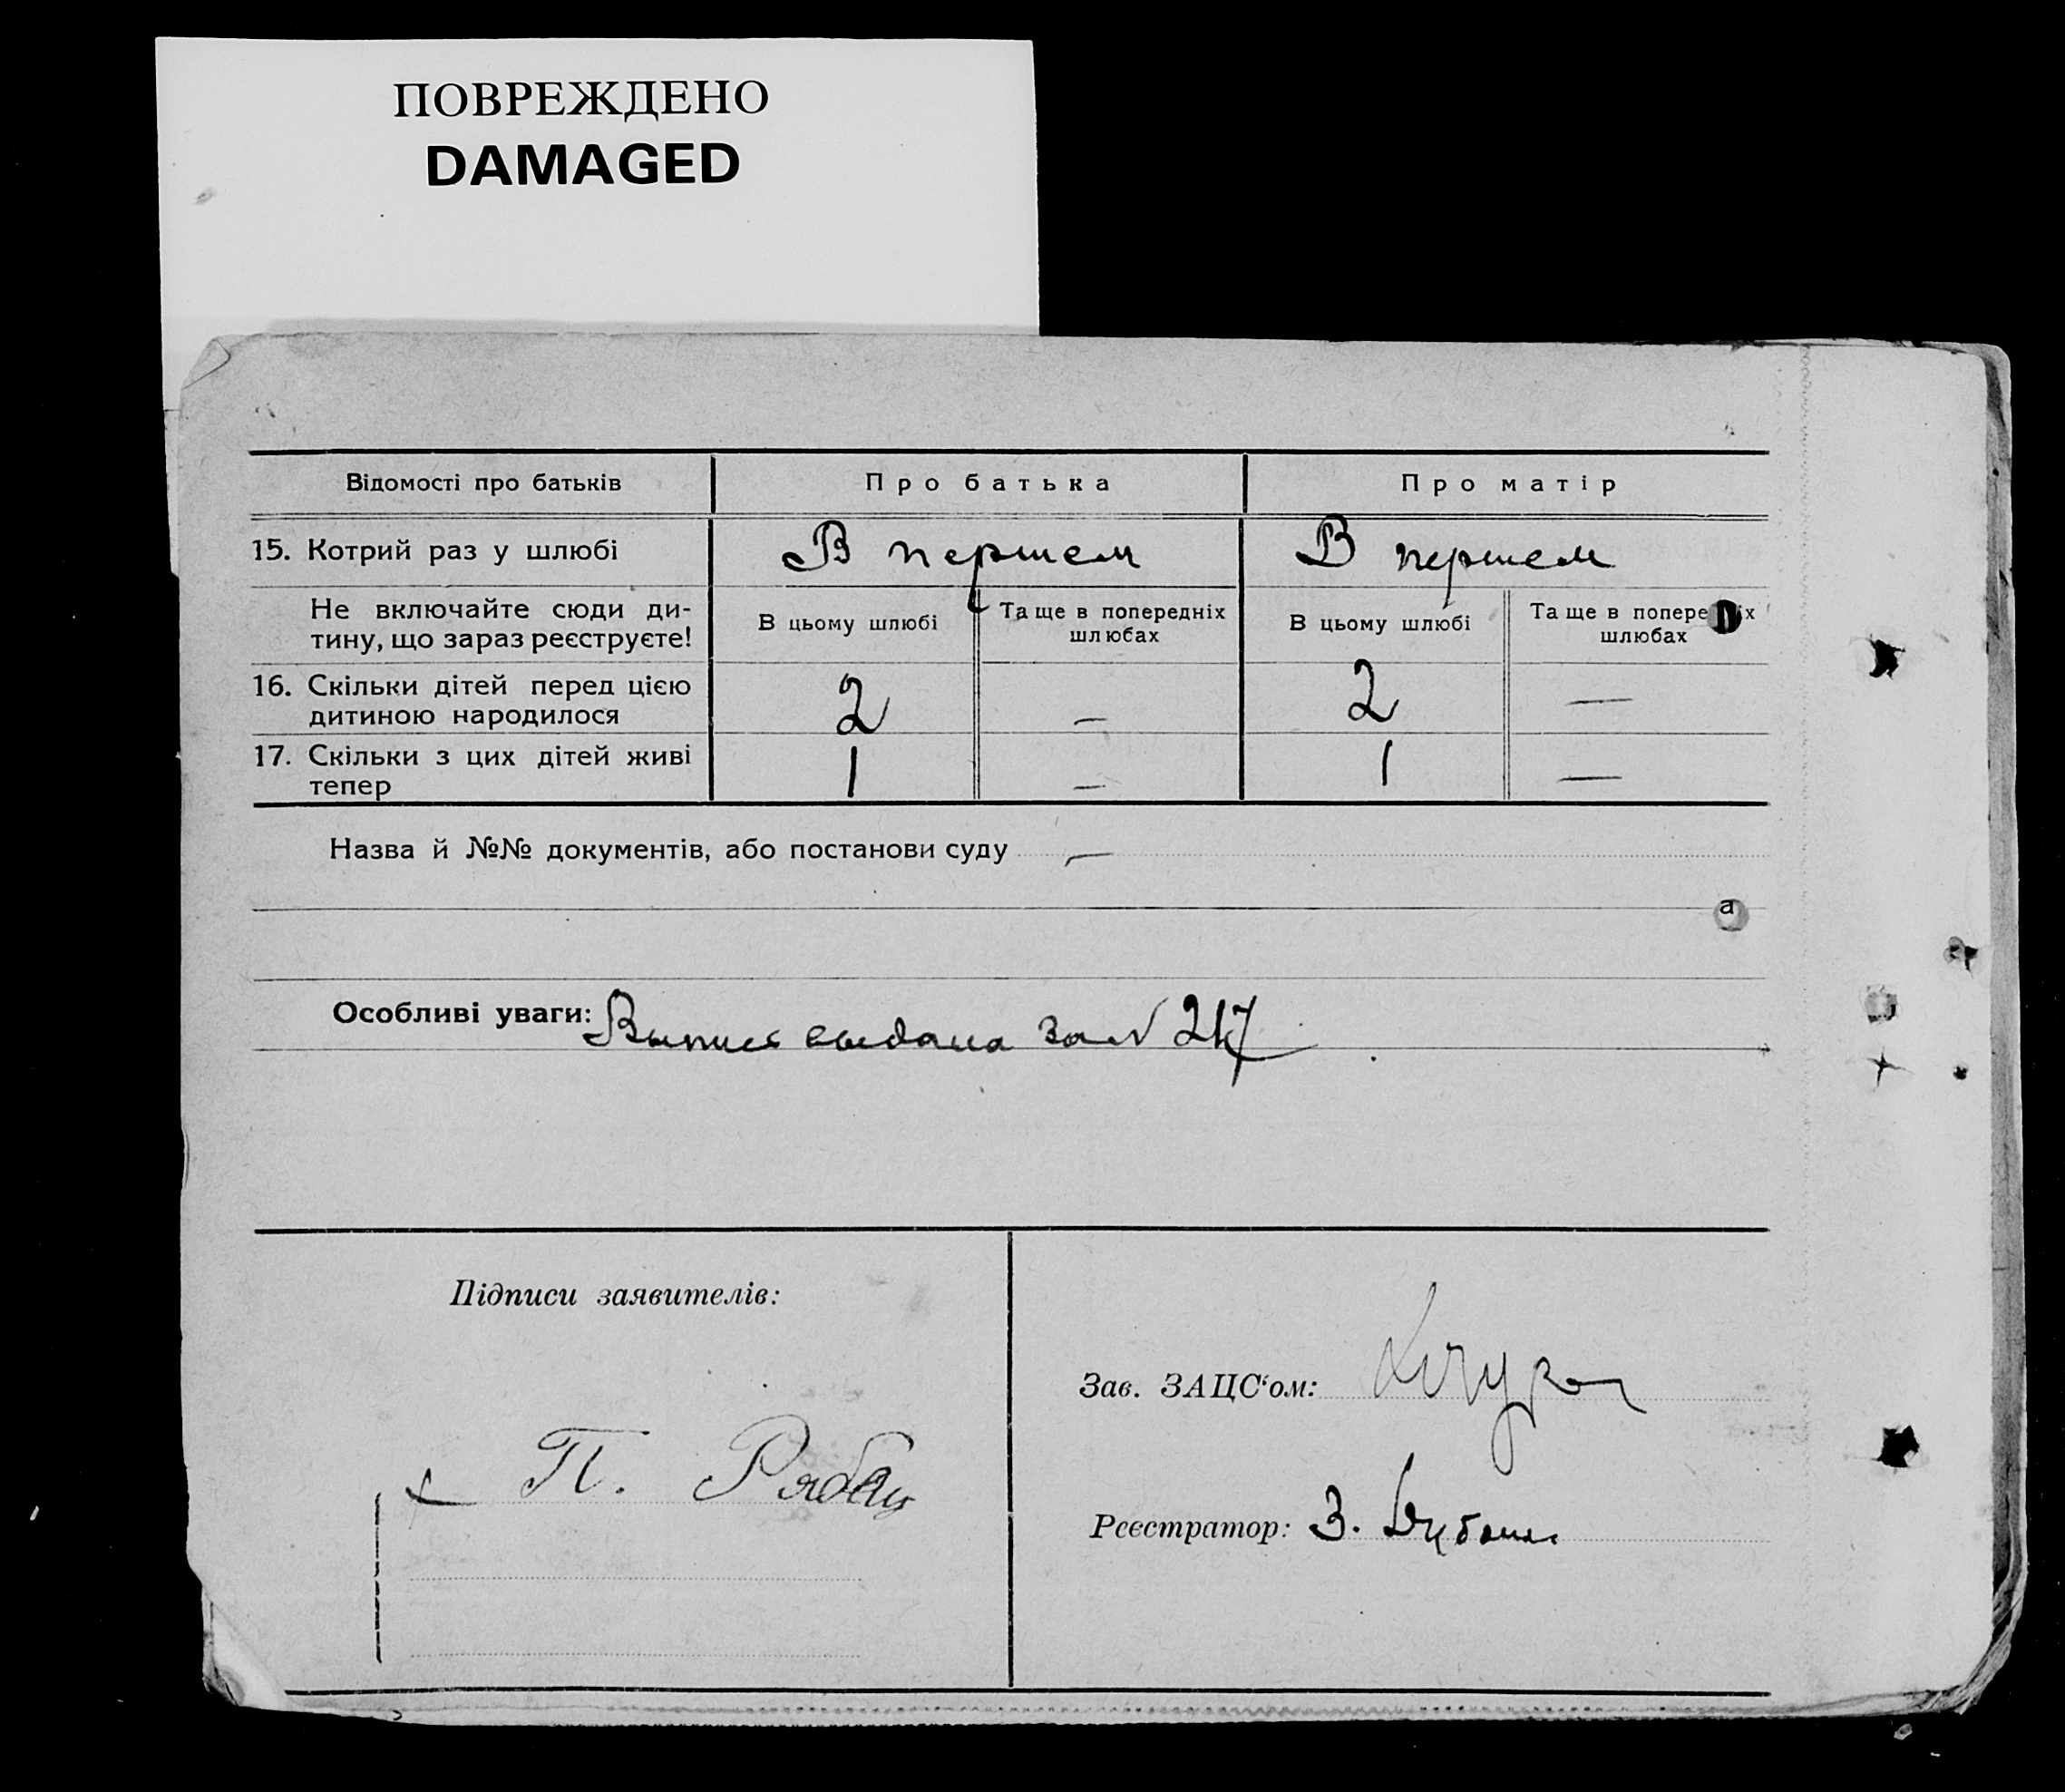 ПОВРЕЖДЕНО
DAMAGED
Відомості про батьків Про батька Про матір
15. Котрий раз у шлюбі В першем В першем
Не включайте сюди ди-
тину, що зараз реєструєте!
В цьому шлюбі Та ще в попередніх
шлюбах
В цьому шлюбі Та ще в попере іх
шлюбах
16. Скільки дітей перед цією
дитиною народилося
2 — 2 —
17. Скільки з цих дітей живі
тепер
1 — 1 —
Назва й №№ документів, або постанови суду —
а
Особливі уваги: Выпись выдана за N 217
Підписи заявителів:
Зав. ЗАЦС‘ом:
П. Рябец
Реєстратор: З.